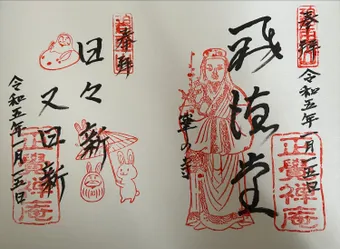 奉拝
令和五年一月一五日
正覺禅庵
堂
筆の寺
奉拝
日々新
又日新
令和五年一月一五日
正覺禅庵